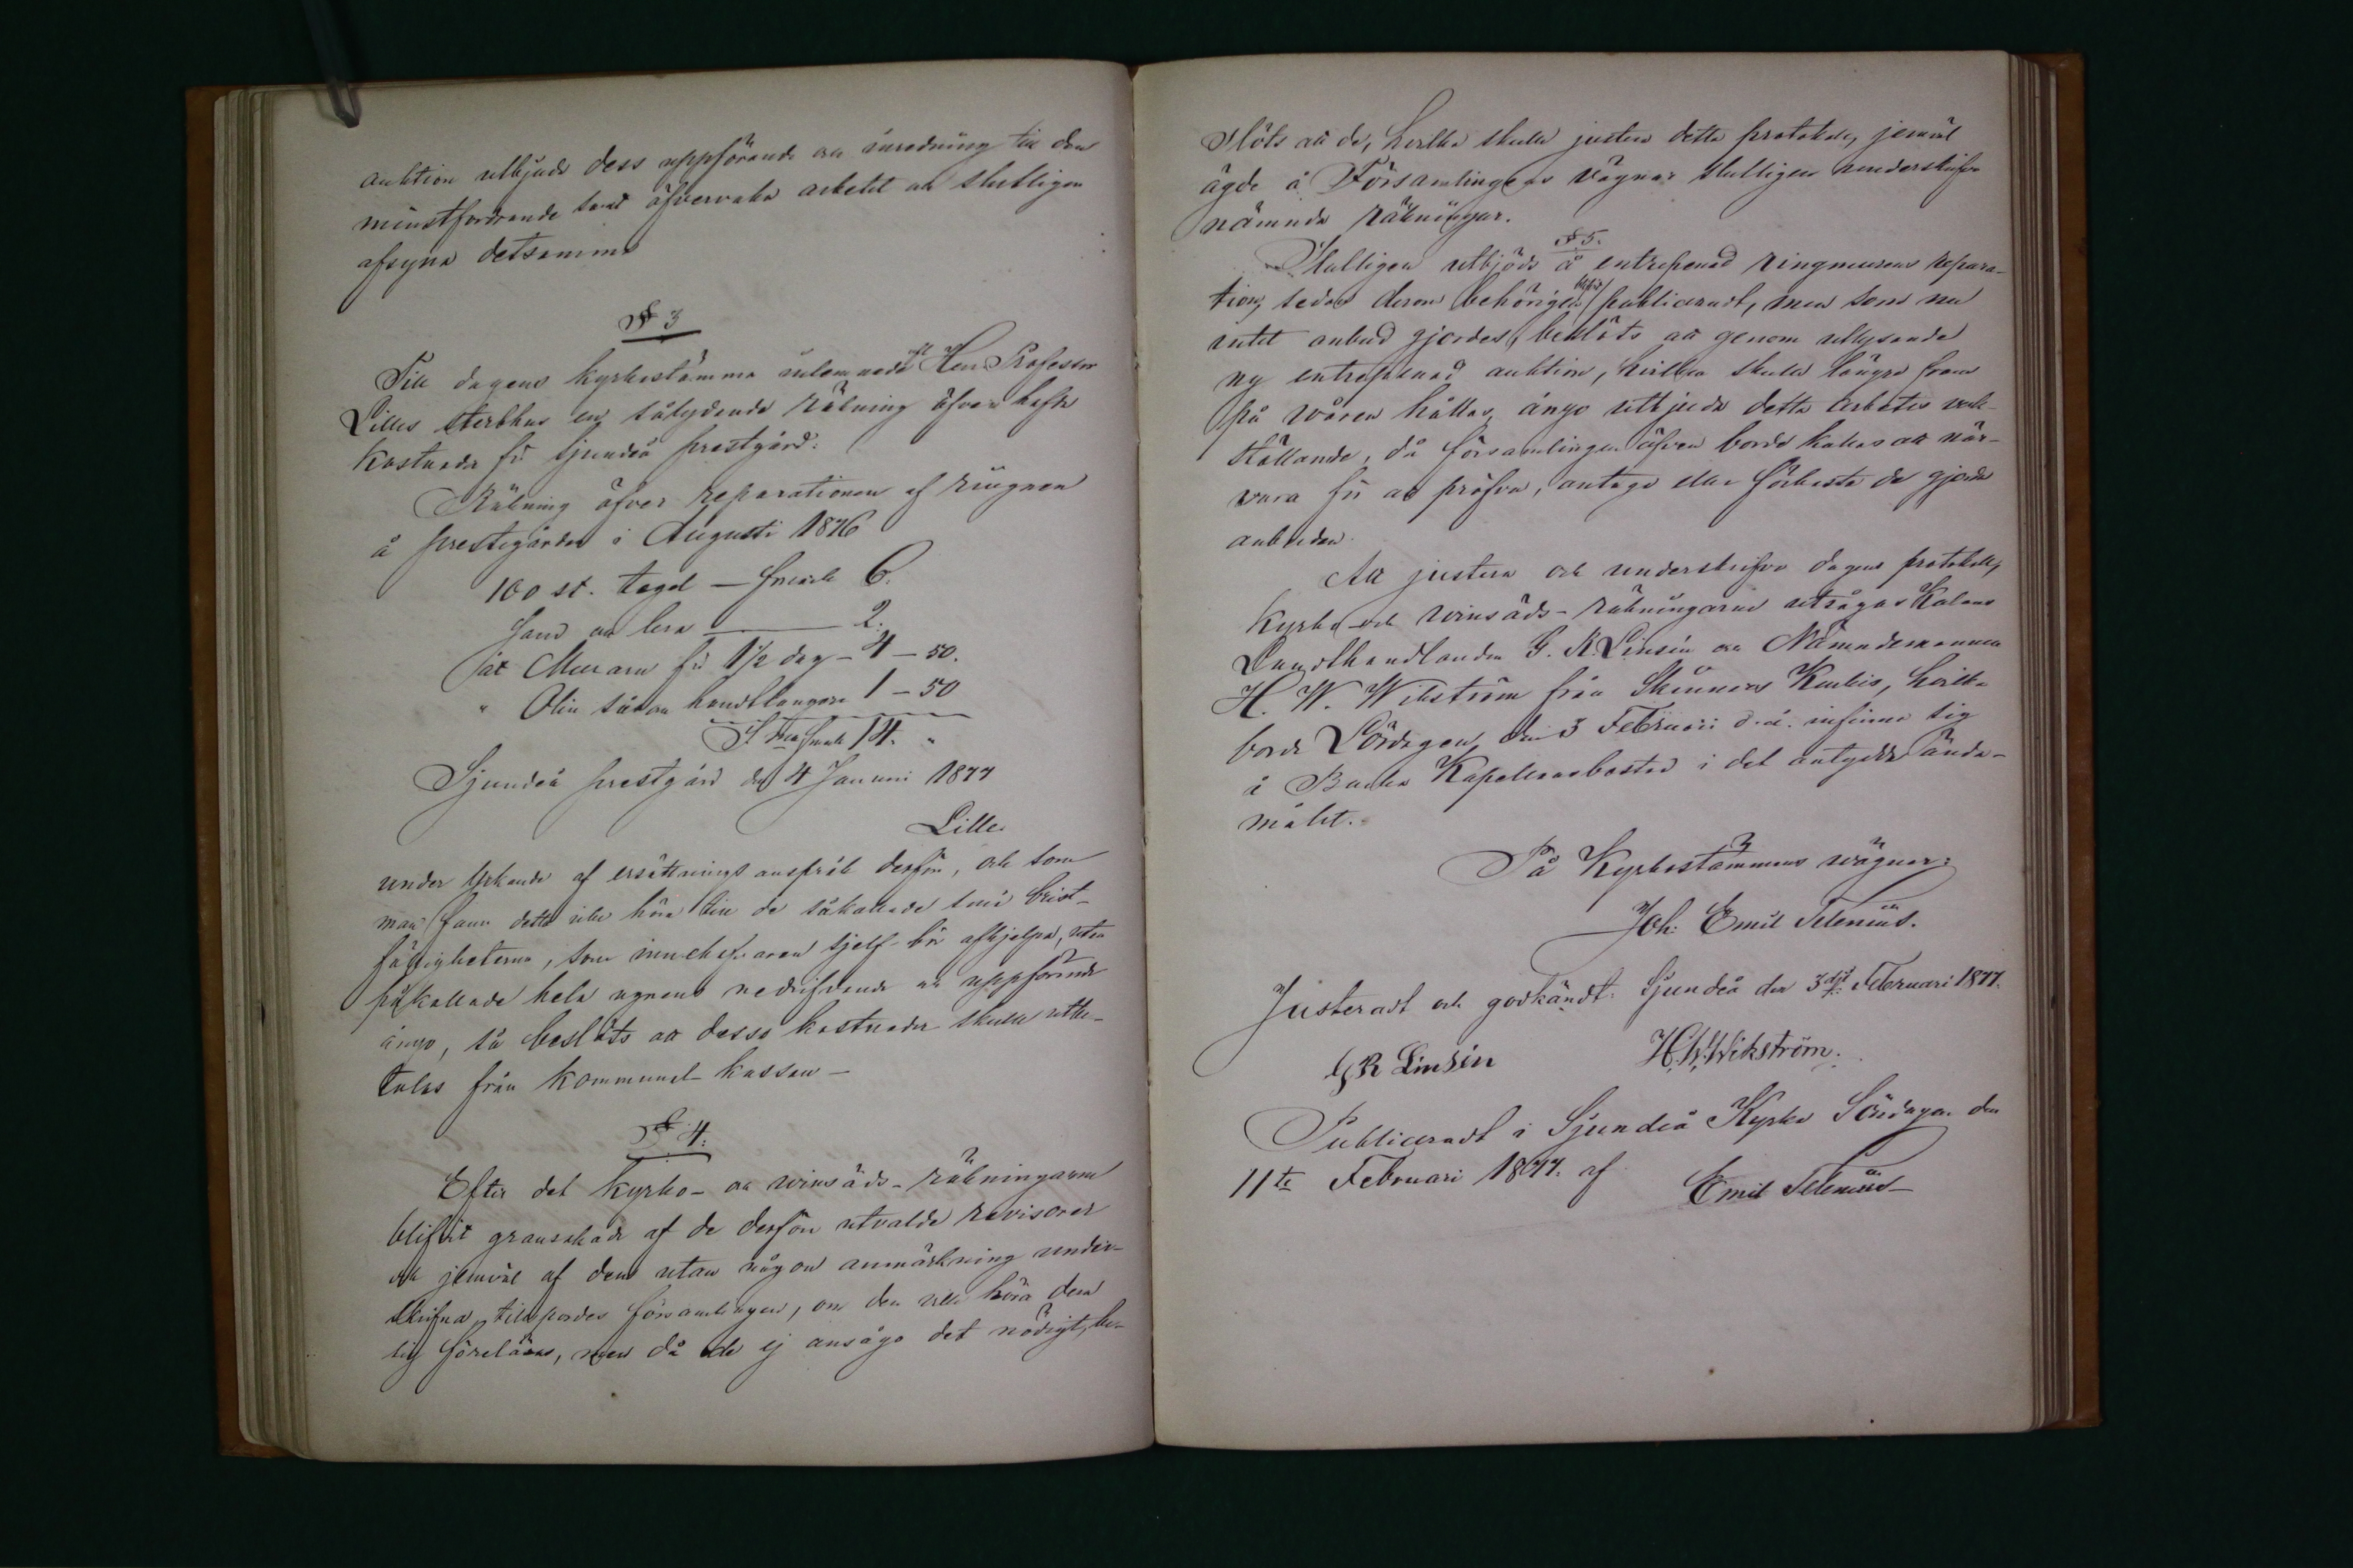 auktion utbjuda dess uppförande och inredning till den
minstfordrande samt öfvervaka arbetet och slutligen
afsyna detsamma
§ 3
Till dagens kyrkostämma inlemnade afl. Herr Professor
Lilles sterbhus en sålydande räkning öfver hafde
kostnader för Sjundeå prestgård:
Räkning öfver reparationen af riugnen
å prestegården i Augusti 1876
100 st. tegel — Fmark 6.
Sand och lera — 2.
åt Muraren för 1 1/2 dag — 4 — 50.
" Olin såsom handtlangare 1 — 50
S:ma Fmark 14. "
Sjundeå prestgård den 4 Januari 1877
Lille
under yrkande af ersättningsanspråk derför, och som
man fann detta icke höra till de såkallade små brist-
fälligheterna, som innehafvaren sjelf bör afhjelpa, utan
påkallade hela ugnens nedrifvande och uppförande
ånyo, så beslöts att dessa kostnader skulle utbe-
talas från kommunal-kassan —
§ 4.
Efter det kyrko- och vinsäds-räkningarna
blifvit granskade af de derför utvalde revisorer
och jemväl af dem utan någon anmärkning under-
skrifna, tillspordes församlingen, om den ville höra dem
sig föreläsas, men då de ej ansågo det nödigt, be-
slöts att de, hvilka skulle justera detta protokoll, jemväl
ägde å Församlingens vägnar slutligen underskrifva
nämnda räkningar.
§ 5.
Slutligen utbjöds å entreprenad ringmurens repara-
tion, sedan derom behörigen blifvit publiceradt, men som nu
intet anbud gjordes, beslöts att genom utlysande
ny entreprenad auktion, hvilken skulle längre fram
på våren hållas, ånyo utbjuda detta arbetes verk-
ställande, då församlingen äfven borde kallas att när-
vara för att pröfva, antaga eller förkasta de gjorda
anbuden.
Att justera och underskrifva dagens protokoll,
kyrko- och vinsäds-räkningarne utsågos
Landthandlanden G. R. Linsén och Nämndemannen
H. W. Wikström från Skinnars Kurkis, hvilka
borde Lördagen den 3 Februari d. å. infinna sig
å Backa Kapellansbostad i det antydda ända-
målet.
På Kyrkostämmans vägnar:
Joh. Emil Telenius.
Justeradt och godkändt: Sjundeå den 3dje Februari 1877.
G R Linsén H.W.Wikström.
Publiceradt i Sjundeå Kyrka Söndagen den
11te Februari 1877. af
Emil Telenius